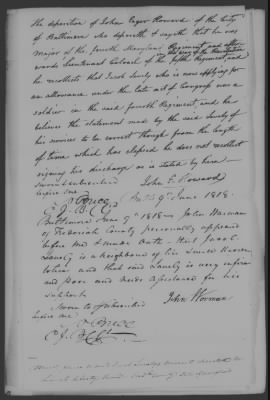 The deposition of John Eager Howard of the City
of Baltimore who deposeth & sayeth that he was
Major of the fourth Maryland Regiment and after
wards Lieutenant Colonel of the fifth Regiment, and
he recollects that Jacob Lively who is now applying for
an allowance under the late act of Congress was a
soldier in the said fourth Regiment, and he
believes the statement made by the said Lively of
his services to be correct though from the length
of time which has elapsed he does not recollect
signing his discharge as is stated by him.
Sworn & subscribed
before me
John E. Howard
9th June 1818.
Baltimore June 9th 1818 John Worman
of Frederick County personally appeared
before me & made Oath that Jacob
Lively is a neighbour of his
and that said Lively is very infirm
and poor and needs assistance for his
support
Sworn to & subscribed
before me
John Worman